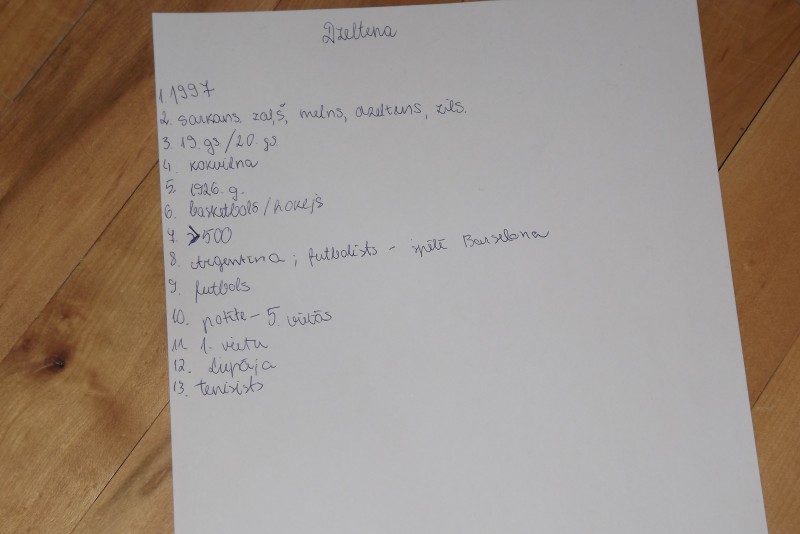 Dzeltena
1. 1997
2. sarkans. zaļš, melns, dzeltens, zils.
3. 19. gs / 20. gs.
4. kokvilna
5. 1926. g.
6. basketbols / hokejs
7. >500
8. Argentina ; futbolists - spēlē Barselona
9. futbols
10. - 5. vietās
11. 1. vietu
12. Liepāja
13. tenisists